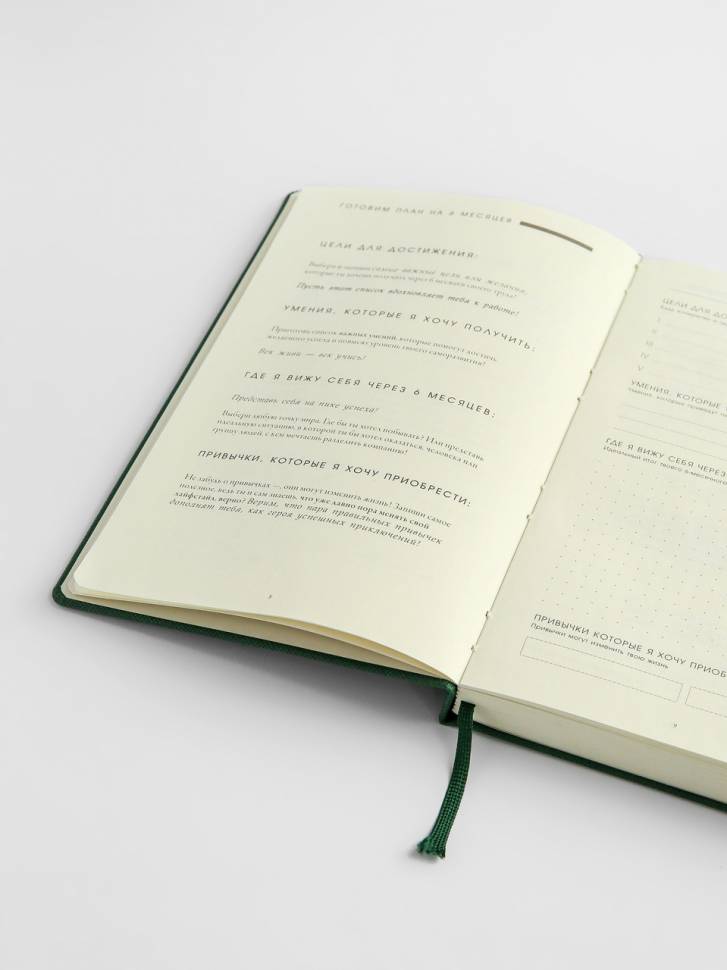 ГОТОВИМ ПЛАН НА 6 МЕСЯЦЕВ
ЦЕЛИ ДЛЯ ДОСТИЖЕНИЯ:
Выбери и запиши самые важные цели или желания,
которые ты хочешь получить через 6 месяцев своего труда!
Пусть этот список вдохновляет тебя к работе!
УМЕНИЯ, КОТОРЫЕ Я ХОЧУ ПОЛУЧИТЬ:
Приготовь список важных умений, которые помогут достичь
желаемого успеха и повысят уровень твоего саморазвития!
Век живи — век учись!
ГДЕ Я ВИЖУ СЕБЯ ЧЕРЕЗ 6 МЕСЯЦЕВ:
Представь себя на пике успеха!
Выбери любую точку мира. Где бы ты хотел побывать? Или представь
идеальную ситуацию, в которой ты бы хотел оказаться, человека или
группу людей, с кем мечтаешь разделить компанию!
ПРИВЫЧКИ, КОТОРЫЕ Я ХОЧУ ПРИОБРЕСТИ:
Не забудь о привычках —, они могут изменить жизнь! Запиши самое
полезное, ведь ты и сам знаешь, что уже давно пора менять свой
лайфстайл, верно? Верим, что пара правильных привычек
дополнят тебя, как героя успешных приключений!
ЦЕЛИ ДЛЯ
I
II
III
IV
V
УМЕНИЯ, КОТОРЫЕ
Умения, которые приведут
ГДЕ Я ВИЖУ СЕБЯ ЧЕРЕЗ
Идеальный итог твоего 6-месячного
ПРИВЫЧКИ КОТОРЫЕ Я ХОЧУ ПРИОБР
Привычки могут изменить твою жизнь
9